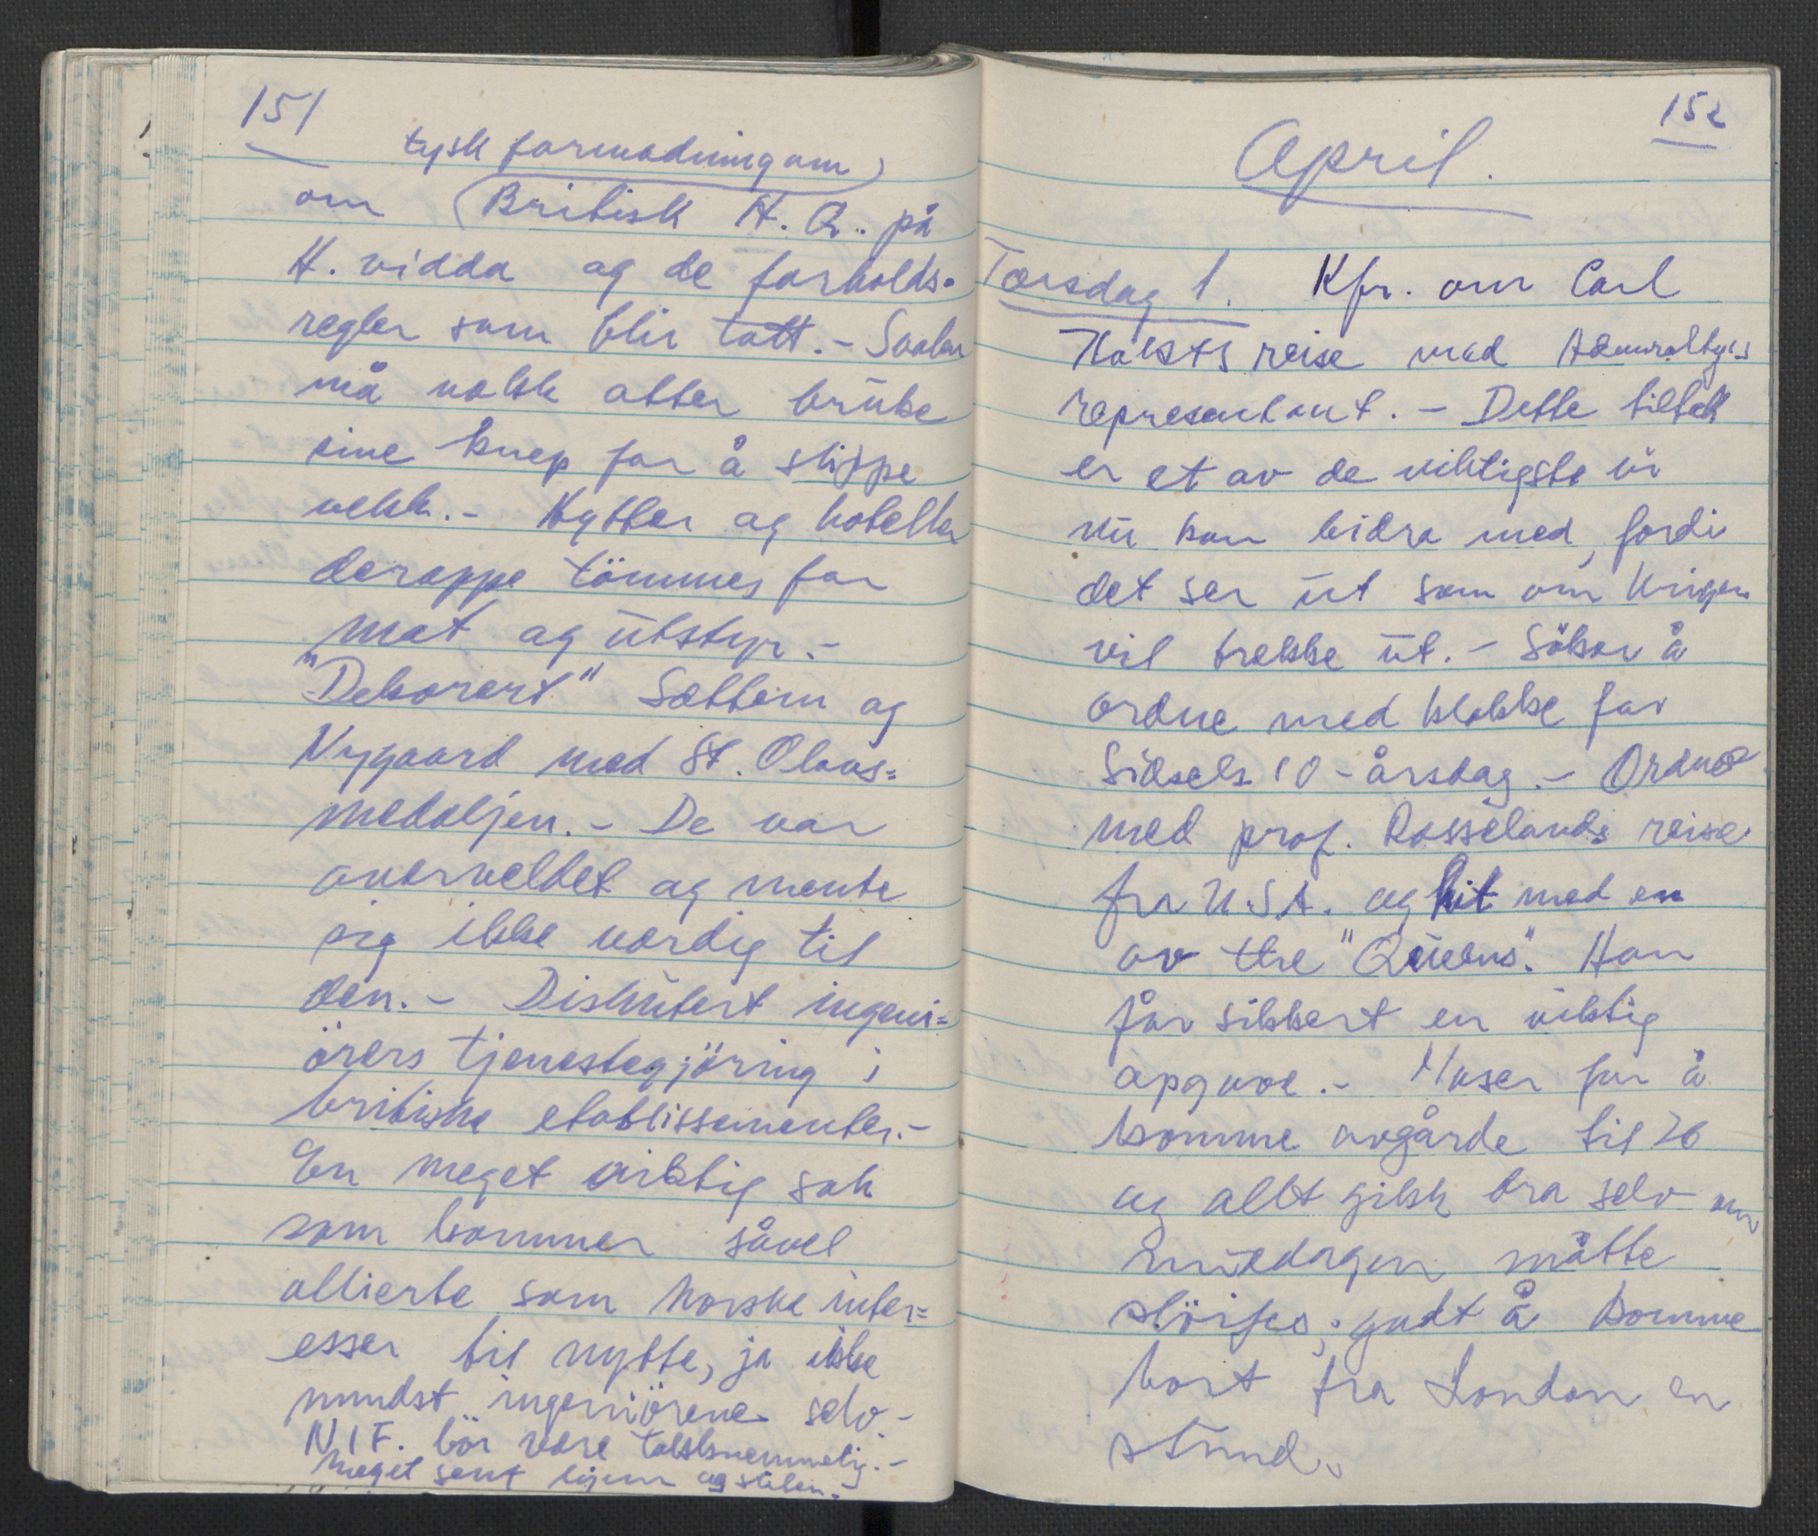 151
tysk formodning om
om (British H.Q. på
H. vidda og de forholds-
regler som blir tatt. - Svolen
må nokk atter bruke
sine knep for å slippe
vekk. - Hytter og hoteller
deroppe tömmes for
mat og utstyr. -
"Dekorert" Sættem og
Nygaard med St. Olavs=
medaljen. - De var
overveldet og mente
sig ikke verdig til
den. - Diskutert ingeni=
örers tjenestegjöring i
britiske etablissementer. -
En meget viktig sak
som kommer såvel
allierte som norske inter=
esser til nytte, ja ikke
mindst ingeniörene selv. -
N I F. bör være takknemmelig. -
Meget sent hjem og sliten. -
152
April.
Torsdag 1. Kfr. om Carl
Holsts reise med Admiraltyets
representant. - Dette tiltak
er et av de viktigste vi
nu kan bidra med, fordi
det ser ut som om krigen
vil trekke ut. - Söker å
ordne med klokke for
Sidsels 10-årsdag. - Ordne
med prof. Rosselands reise
fra U.S.A. og hit med en
av the "Queens". Han
får sikkert en viktig
opgave. - Maser for å
komme avgårde til 26
og allt gikk bra selv om
middagen måtte
slöifes; godt å komme
bort fra London en
stund.